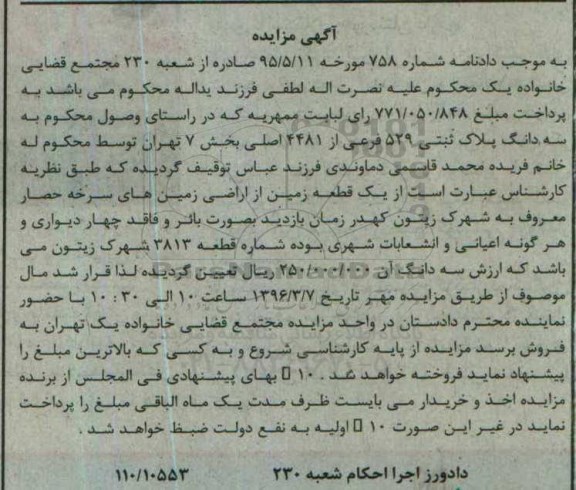 آگهی مزایده
به موجب دادنامه شماره ۷۵۸ مورخه ۹۵/۵/۱۱ صادره از شعبه ۲۳۰ مجتمع قضایی
خانواده یک محکوم علیه نصرت اله لطفی فرزند یداله محکوم می باشد به
پرداخت مبلغ ۷۷۱/۰۵۰/۸۴۸ رای لبایت ممهریه که در راستای وصول محکوم به
سه دانگ پلاک ثبتی ۵۲۹ فرعی از ۴۴۸۱ اصلی بخش ۷ تهران توسط محکوم له
خانم فریده محمد قاسمی دماوندی فرزند عباس توقیف گردیده که طبق نظریه
کارشناس عبارت است از یک قطعه زمین از اراضی زمین های سرخه حصار
معروف به شهرک زیتون کهدر زمان بازدید بصورت بائر و فاقد چهار دیواری و
هر گونه اعیانی و انشعابات شهری بوده شماره قطعه ۳۸۱۳ شهرک زیتون می
باشد که ارزش سه دانگ آن ۲۵۰/۰۰۰/۰۰۰ ریال تعیین گردیده لذا قرار شد مال
موصوف از طریق مزایده مهر تاریخ ۱۳۹۶/۳/۷ ساعت ۱۰ الی ۳۰ : ۱۰ با حضور
نماینده محترم دادستان در واحد مزایده مجتمع قضایی خانواده یک تهران به
فروش برسد مزایده از پایه کارشناسی شروع و به کسی که بالاترین مبلغ را
پیشنهاد نماید فروخته خواهد شد . ۱۰ بهای پیشنهادی فی المجلس از برنده
مزایده اخذ و خریدار می بایست ظرف مدت یک ماه الباقی مبلغ را پرداخت
نماید در غیر این صورت ۱۰ اولیه به نفع دولت ضبط خواهد شد .
دادورز اجرا احکام شعبه ۲۳۰ ۱۱۰/۱۰۵۵۳